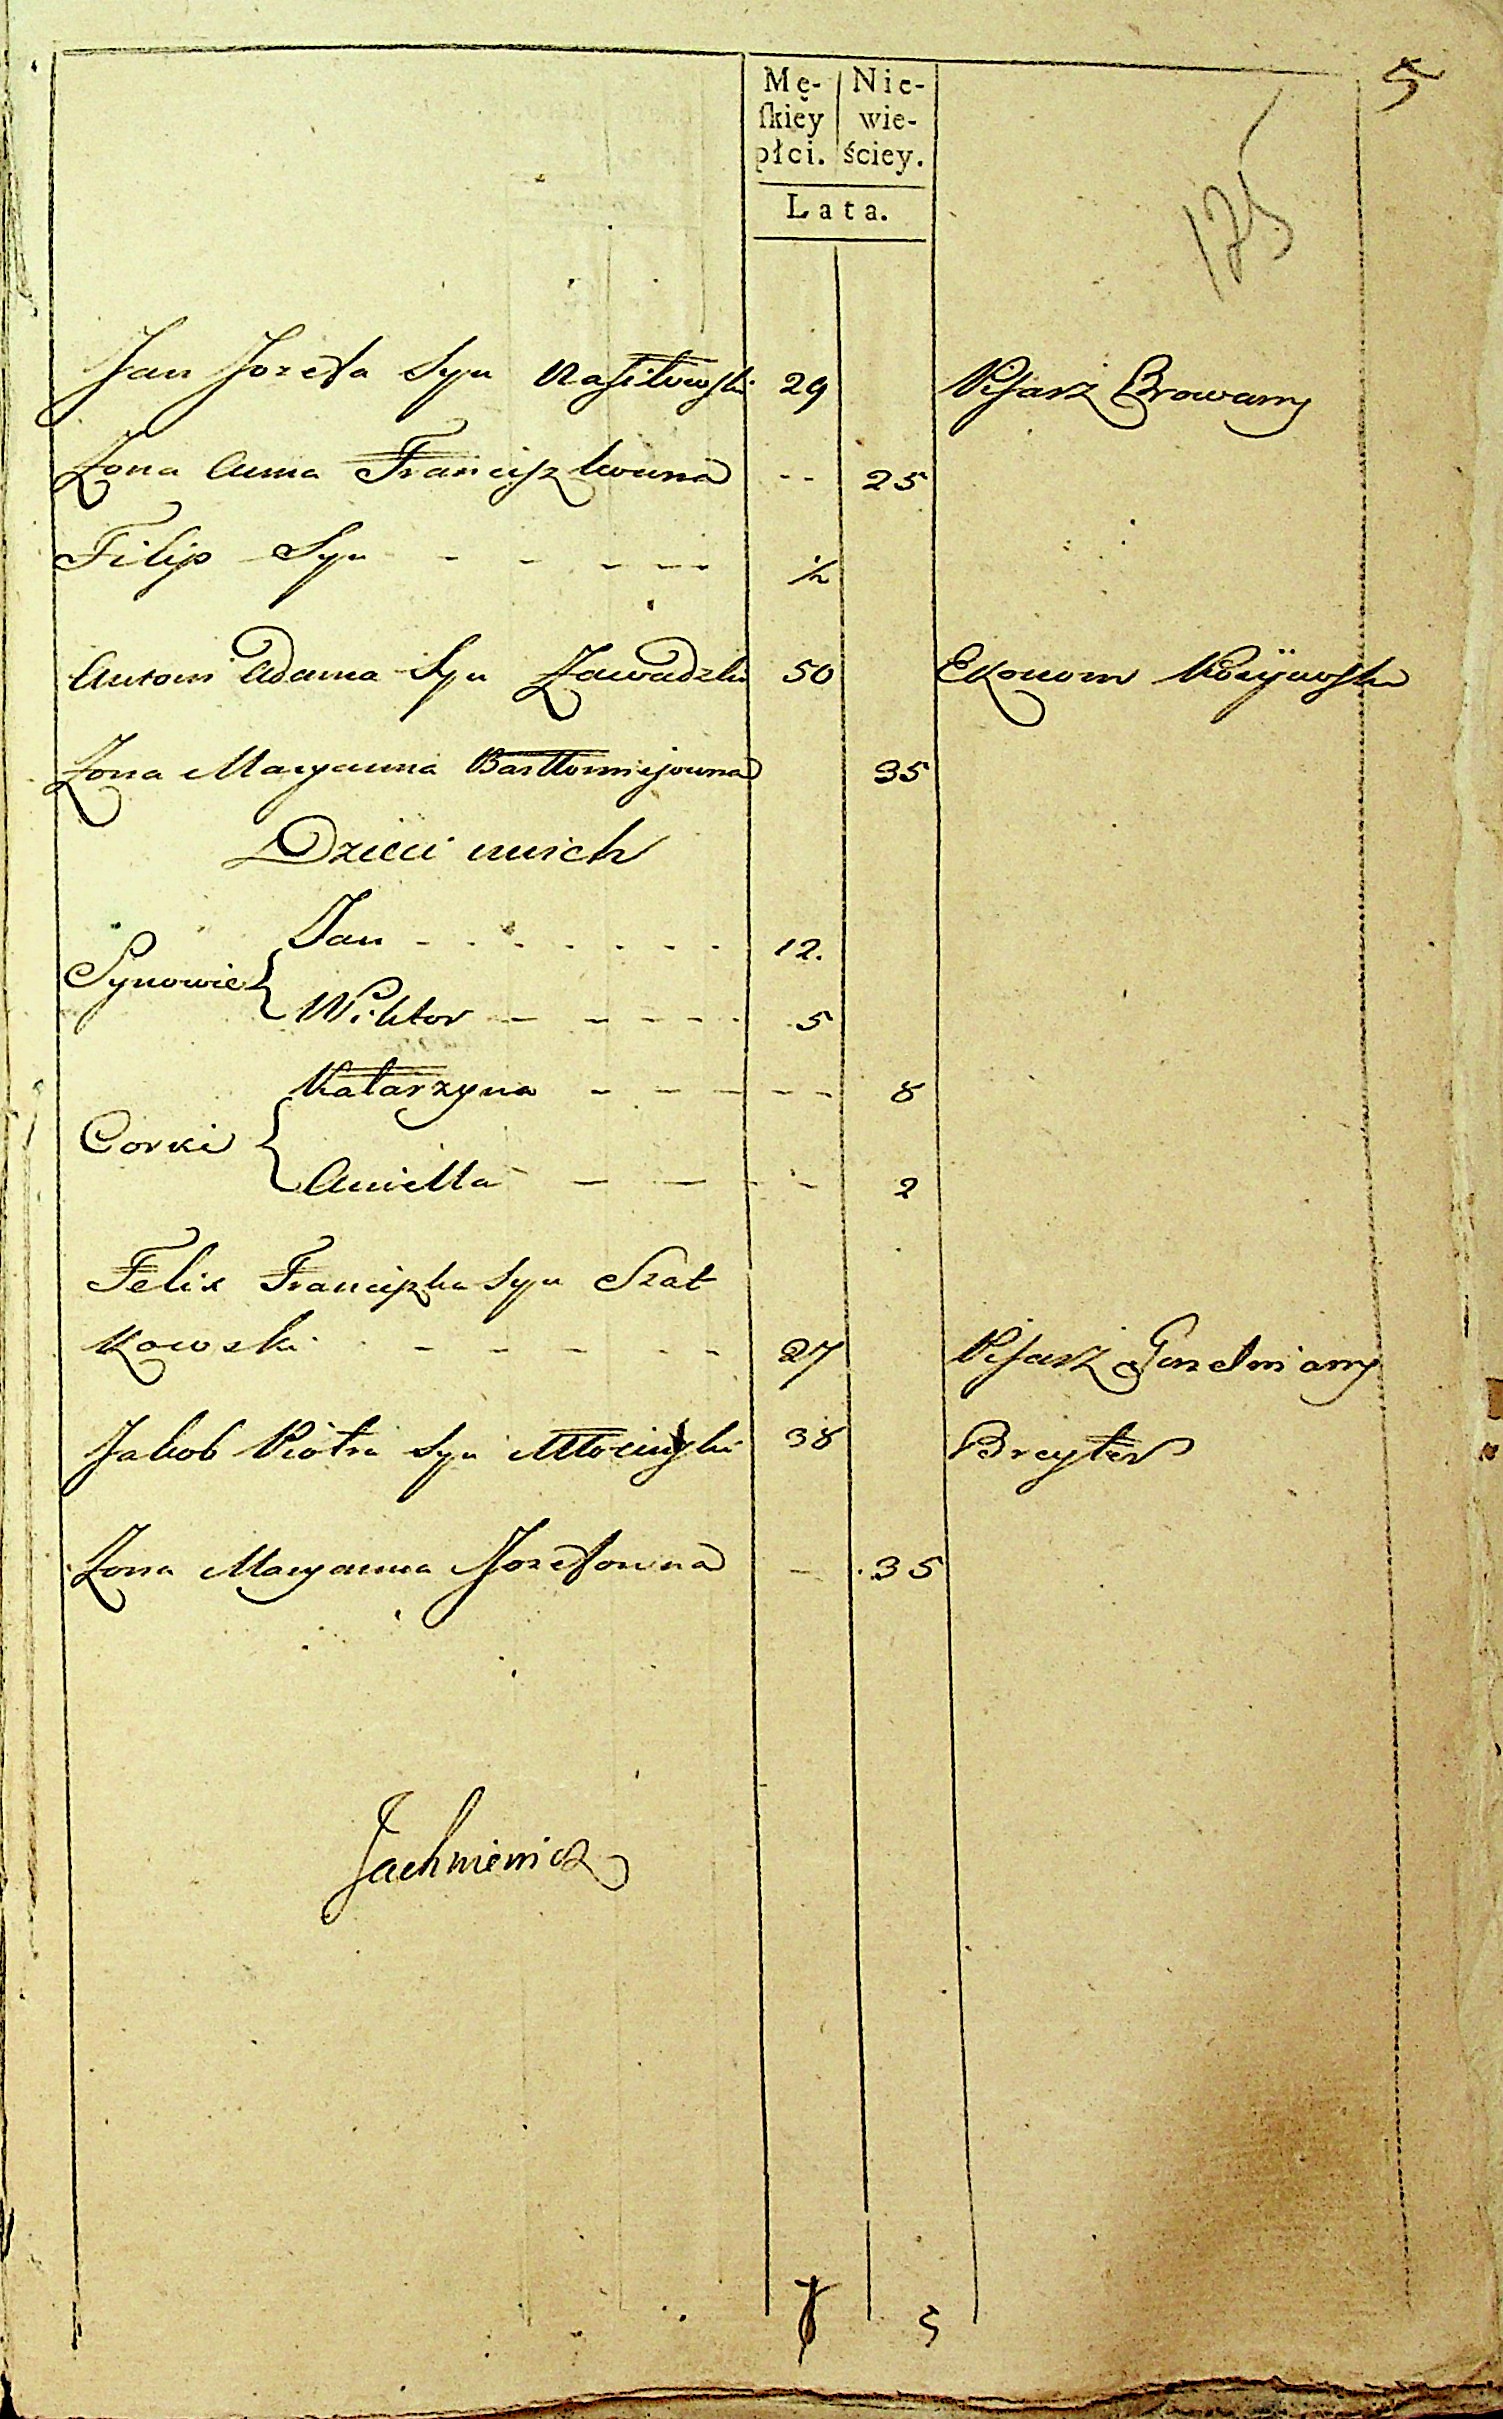 5
Mę- Nie-
ſkiey wie-
płci. ściey.
Lata.
175
Jan Jozefa Syn 29 Pisarz Browarny
Zona Anna Franciszkowna -- 25
Filip Syn - - - - - ½
Antoni Adama Syn Zawadzki 50 Ekonom
Zona Maryanna Bartłomiejowna 35
Dzieci u nich
Jan - - - - - - - 12.
Synowie {
Wiktor - - - - - 5
Katarzyna - - - - - 8
Corki {
Aniella - - - - 2
Felix Franciszka Syn Szat
kowski - - - - - 27 Pisarz Gorzelniany
Jakob Piotra Syn Młocinski 38 Breyter
Zona Maryanna Jozefowna - 35
Jachniewicz
7 5